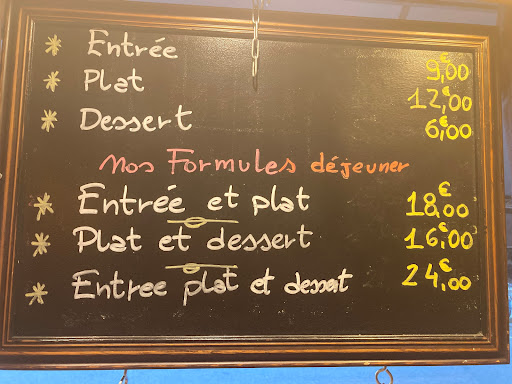 * Entrée 9€,00
* Plat 12€,00
* Dessert 6€,00
Nos Formules déjeuner
* Entrée et plat 18€,00
* Plat et dessert 16€,00
* Entree plat et dessert 24€,00